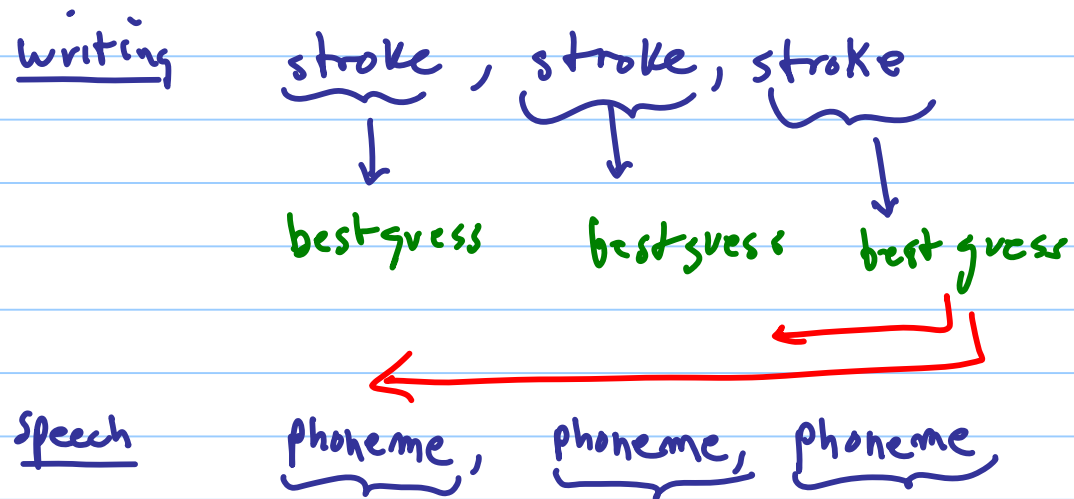 writing stroke, stroke, stroke
best guess best guess best guess
speech phoneme, phoneme, phoneme